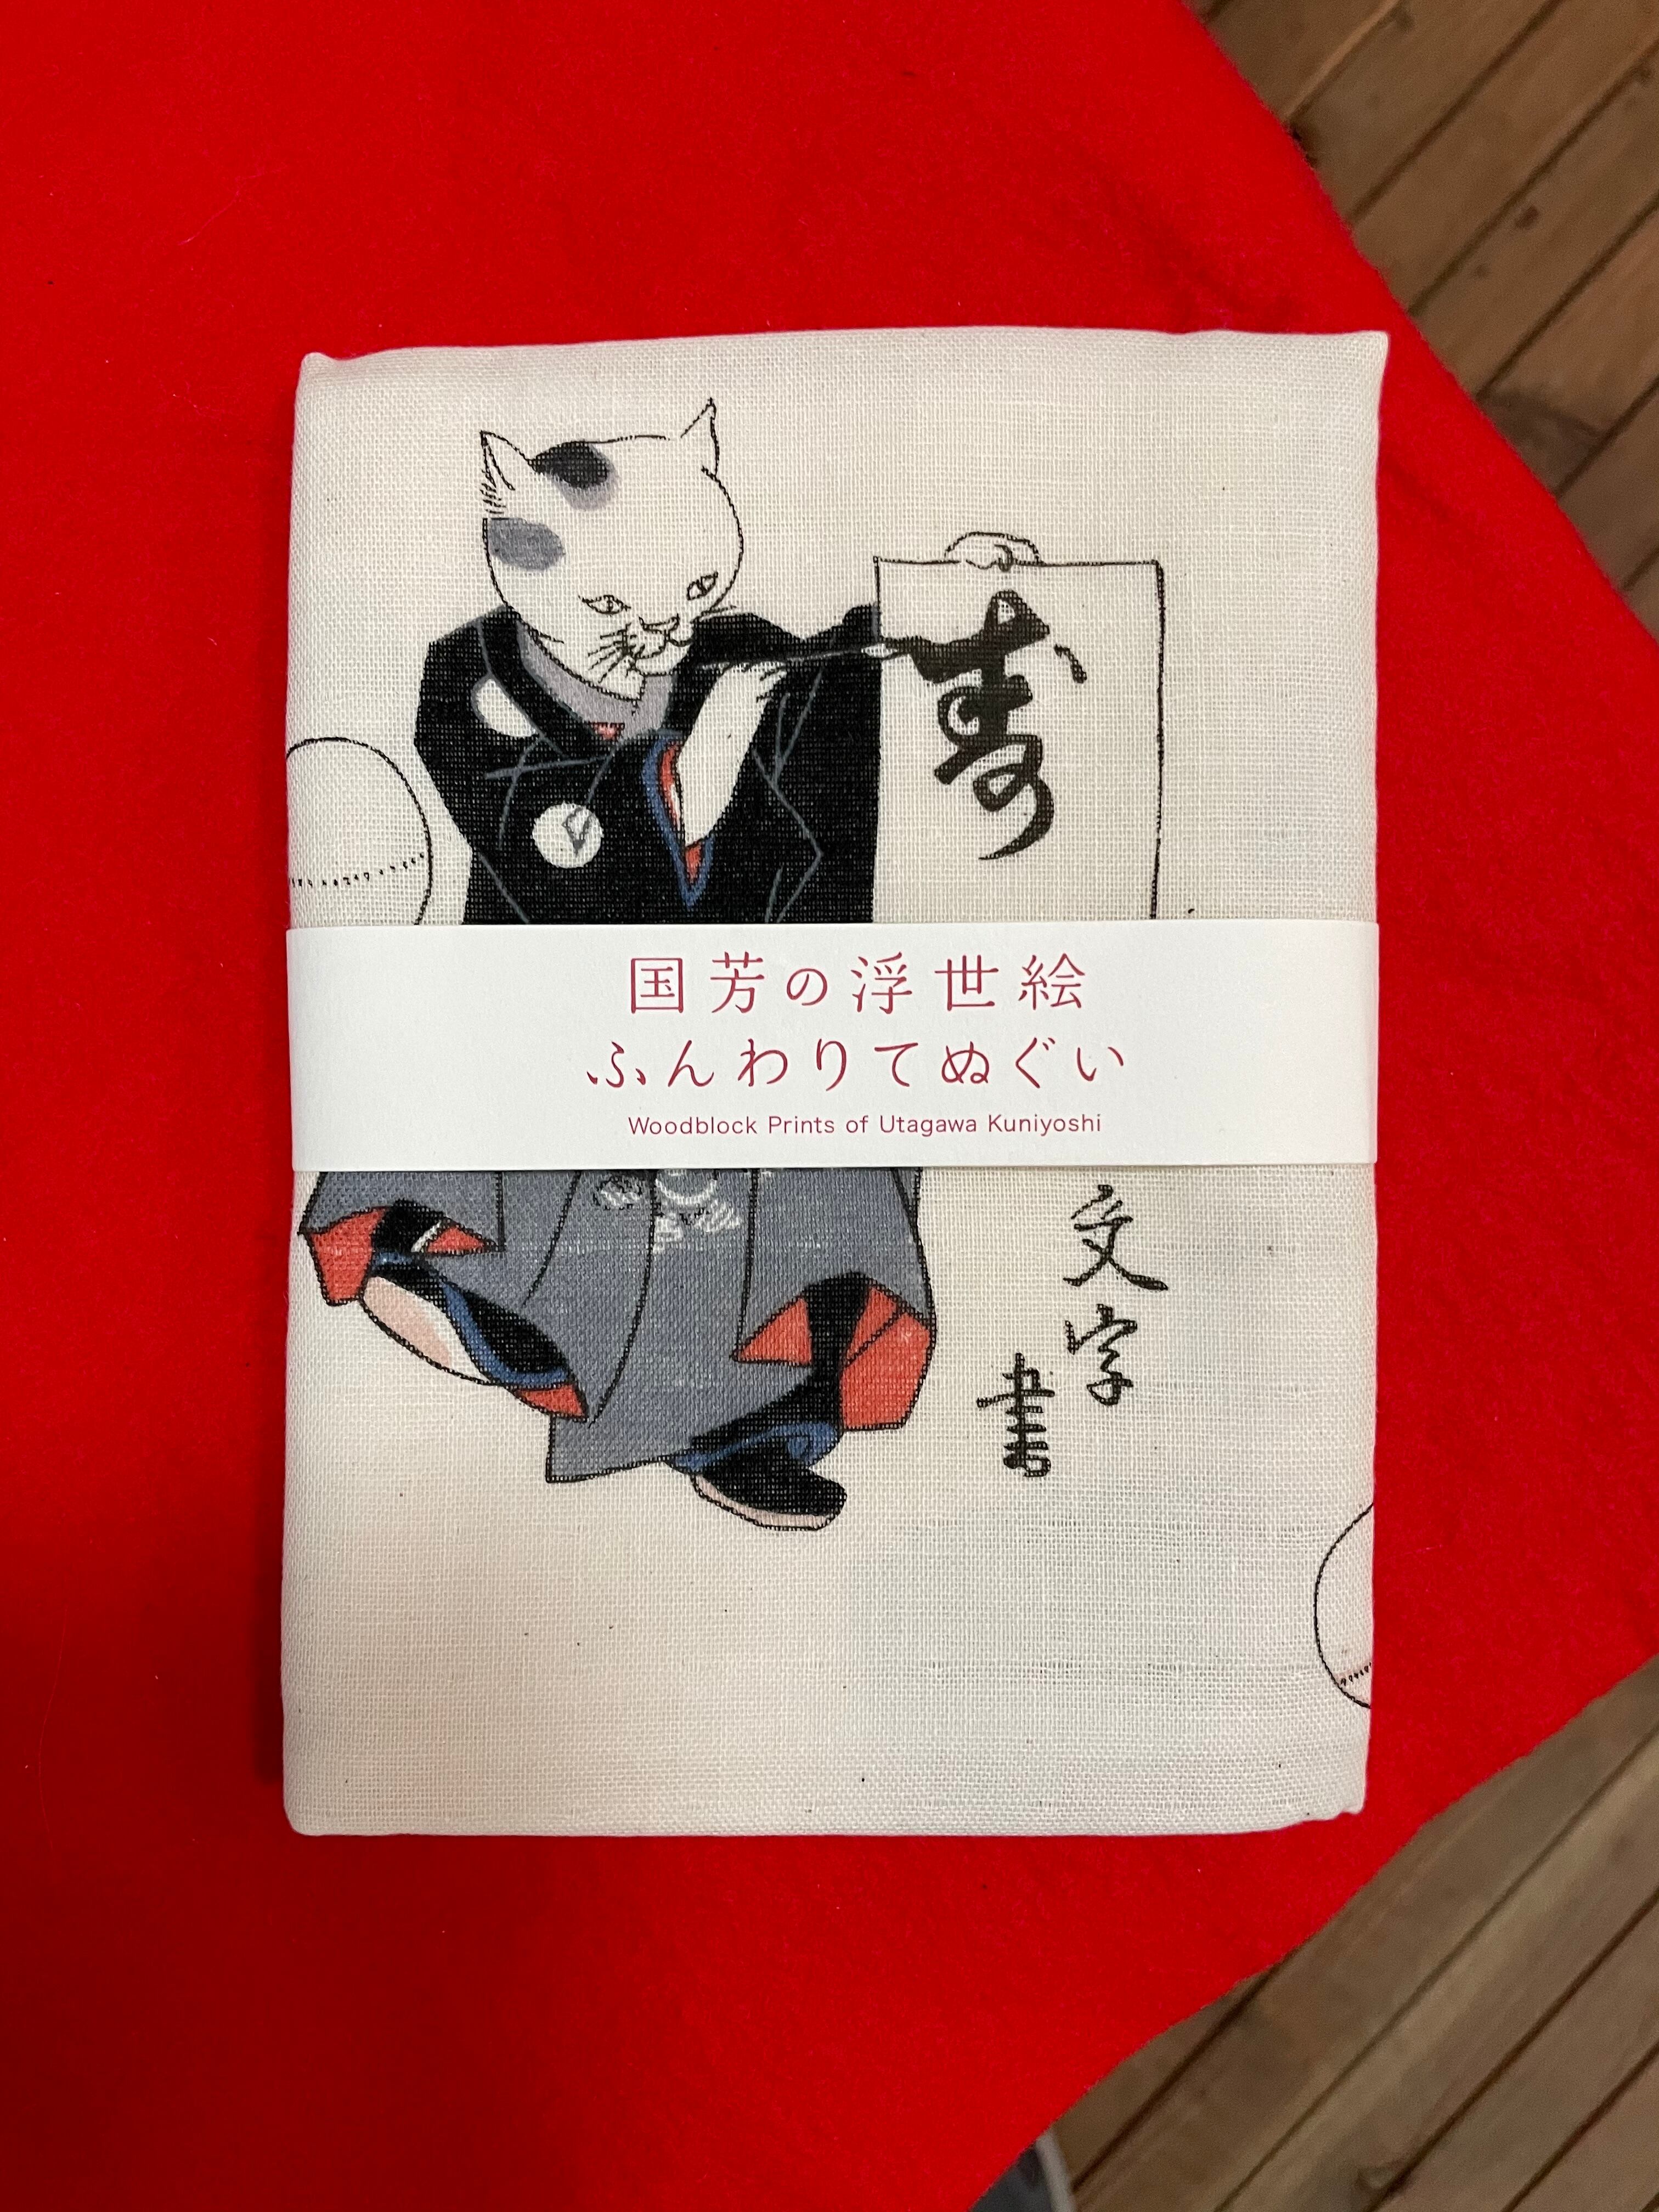 寿
国芳の浮世絵
ふんわりてぬぐい
Woodblock Prints of Utagawa Kuniyoshi
文字
書